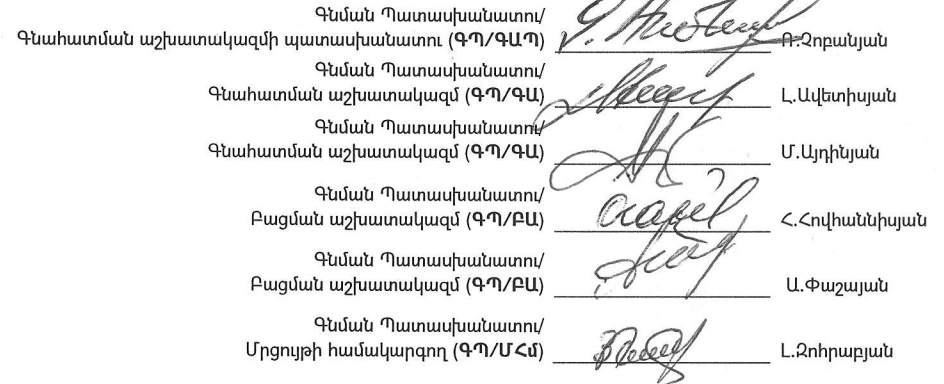 Գնման Պատասխանատու/
Գնահատման աշխատակազմի պատասխանատու (ԳՊ/ԳԱՊ) Ռ.Չոբանյան
Գնման Պատասխանատու/
Գնահատման աշխատակազմ (ԳՊ/ԳԱ) Լ.Ավետիսյան
Գնման Պատասխանատու/
Գնահատման աշխատակազմ (ԳՊ/ԳԱ) Մ.Այդինյան
Գնման Պատասխանատու/
Բացման աշխատակազմ (ԳՊ/ԲԱ) Հ.Հովհաննիսյան
Գնման Պատասխանատու/
Բացման աշխատակազմ (ԳՊ/ԲԱ) Ա.Փաշայան
Գնման Պատասխանատու/
Մրցույթի համակարգող (ԳՊ/ՄՀմ) Լ.Զոհրաբյան